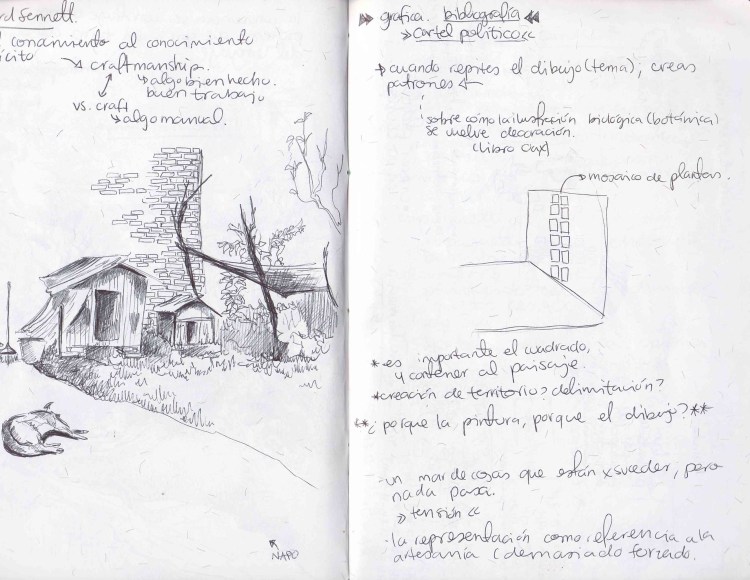 rd Sennett.
conamiento al conocimiento
ícito
craftmanship.
algo bien hecho.
buen trabajo
vs. craft
algo manual.
NAPO
grafica. bibliografía
» Cartel político «
cuando repites el dibujo (tema), creas
patrones
sobre cómo la ilustración biológica (botánica)
se vuelve decoración.
(libro Oax)
mosaico de plantas.
* es importante el cuadrado,
y contener al paisaje.
* creación de territorio? delimitación?
** ¿porque la pintura, porque el dibujo? **
- un mar de cosas que están x suceder, pero
nada pasa.
» tensión «
- la representación como referencia a la
artesanía (demasiado forzado.